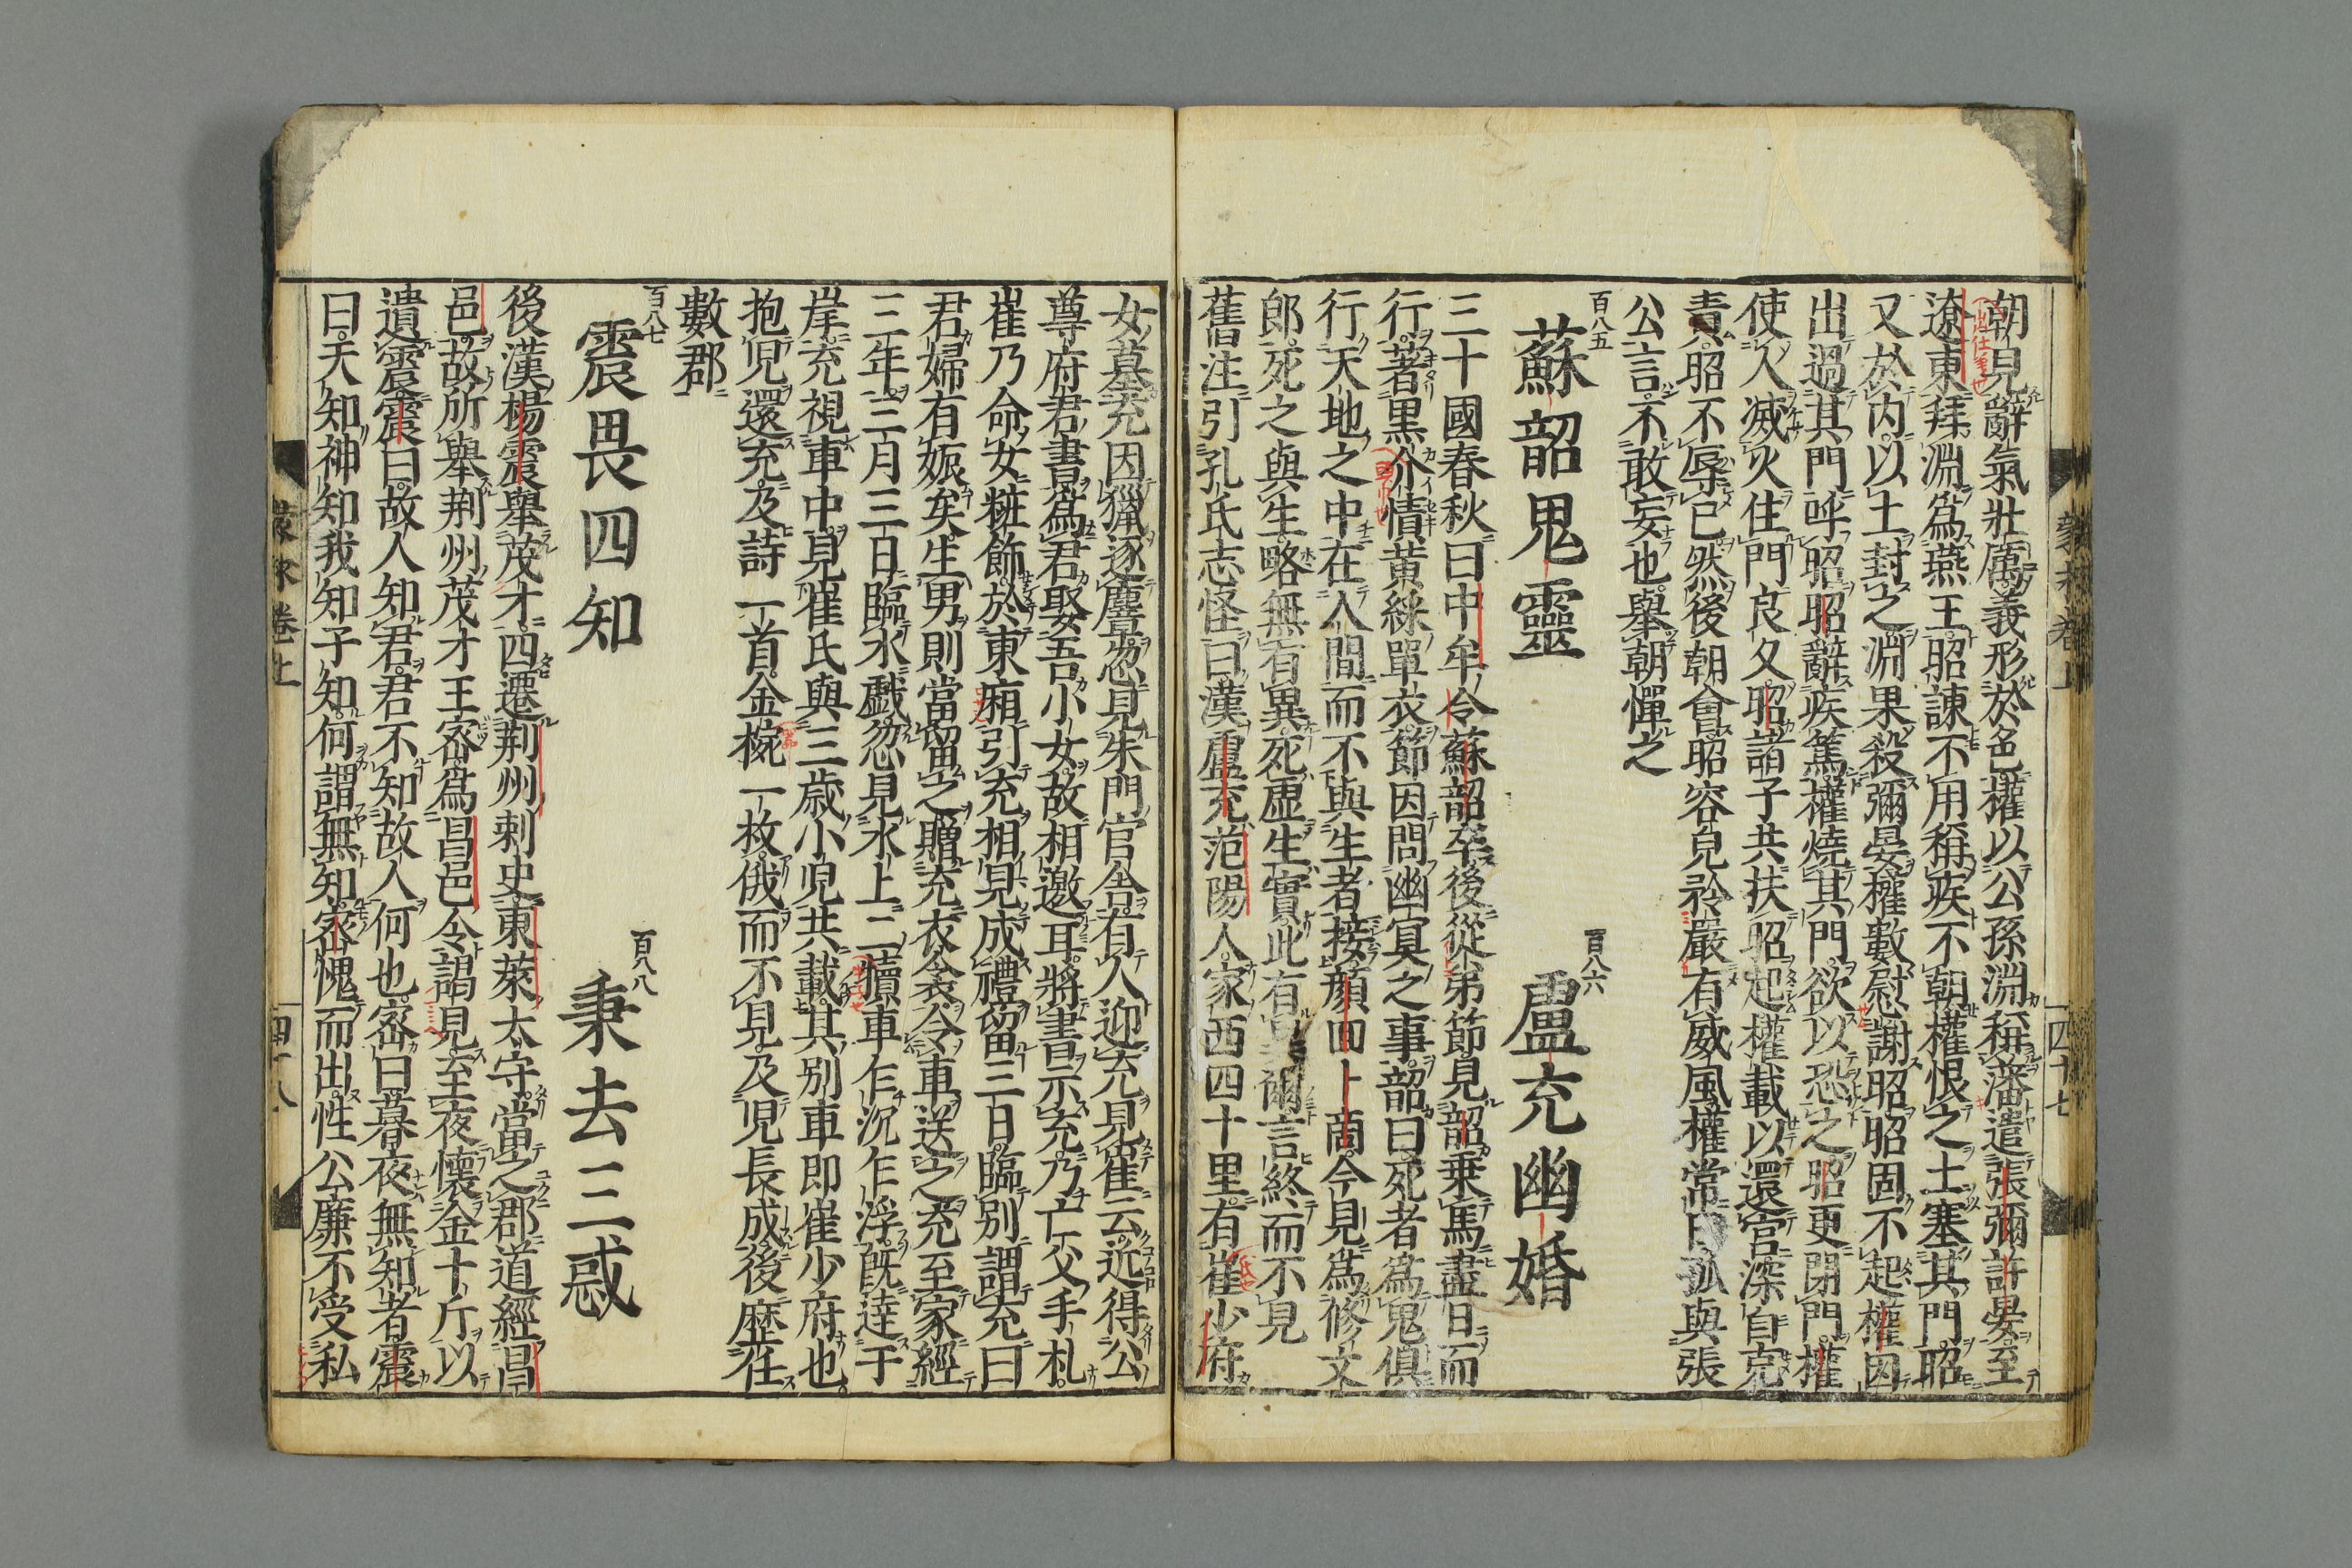 朝見辭氣壯厲義形於色權以公孫淵稱藩遣張彌許晏至
遼東拜淵爲燕王昭諌不用稱疾不朝權恨之土塞其門昭
又於内以土封之淵果殺彌晏權數慰謝昭昭固不起權因
出過其門呼昭昭辭疾篤權燒其門欲以恐之昭更閉門權
使人滅火住門良久昭諸子共扶昭起權載以還宮深自克
責昭不辱已然後朝會昭容皃矜嚴有威風權常曰孤與張
公言不敢妄也舉朝憚之
百八五
蘇韶鬼靈
百八六
盧充幽婚
三十國春秋曰中牟令蘇韶卒後從弟節見韶乗馬晝日而
行著黒介幘黄綀單衣節因問幽冥之事韶曰死者爲鬼俱
行天地之中在人間而不與生者接顔回卜商今見爲修文
郎死之與生略無有異死虚生實此有異爾言終而不見
舊注引孔氏志怪曰漢盧充范陽人家西四十里有崔少府
蒙求卷上
四十七
女墓充因獵逐麞忽見朱門官舍有人迎充見崔云近得公
尊府君書爲君娶吾小女故相邀耳將書示充乃亡父手札
崔乃命女粧飾於東廂引充相見成禮留三日臨別謂充曰
君婦有娠矣生男則當留之贈充衣衾令車送之充至家經
三年三月三日臨水戲忽見水上二犢車乍沉乍浮既達于
崖充視車中見崔氏與三歳小児共載其別車即崔少府也
抱児還充及詩一首金椀一枚俄而不見及児長成後歴任
數郡
百八七
震畏四知
百八八
秉去三惑
後漢楊震舉茂才四遷荆州刺史東萊太守當之郡道經昌
邑故所舉荆州茂才王密爲昌邑令謁見至夜懷金十斤以
遺震震曰故人知君君不知故人何也密曰暮夜無知者震
曰天知神知我知子知何謂無知密愧而出性公廉不受私
蒙求卷上
四十八